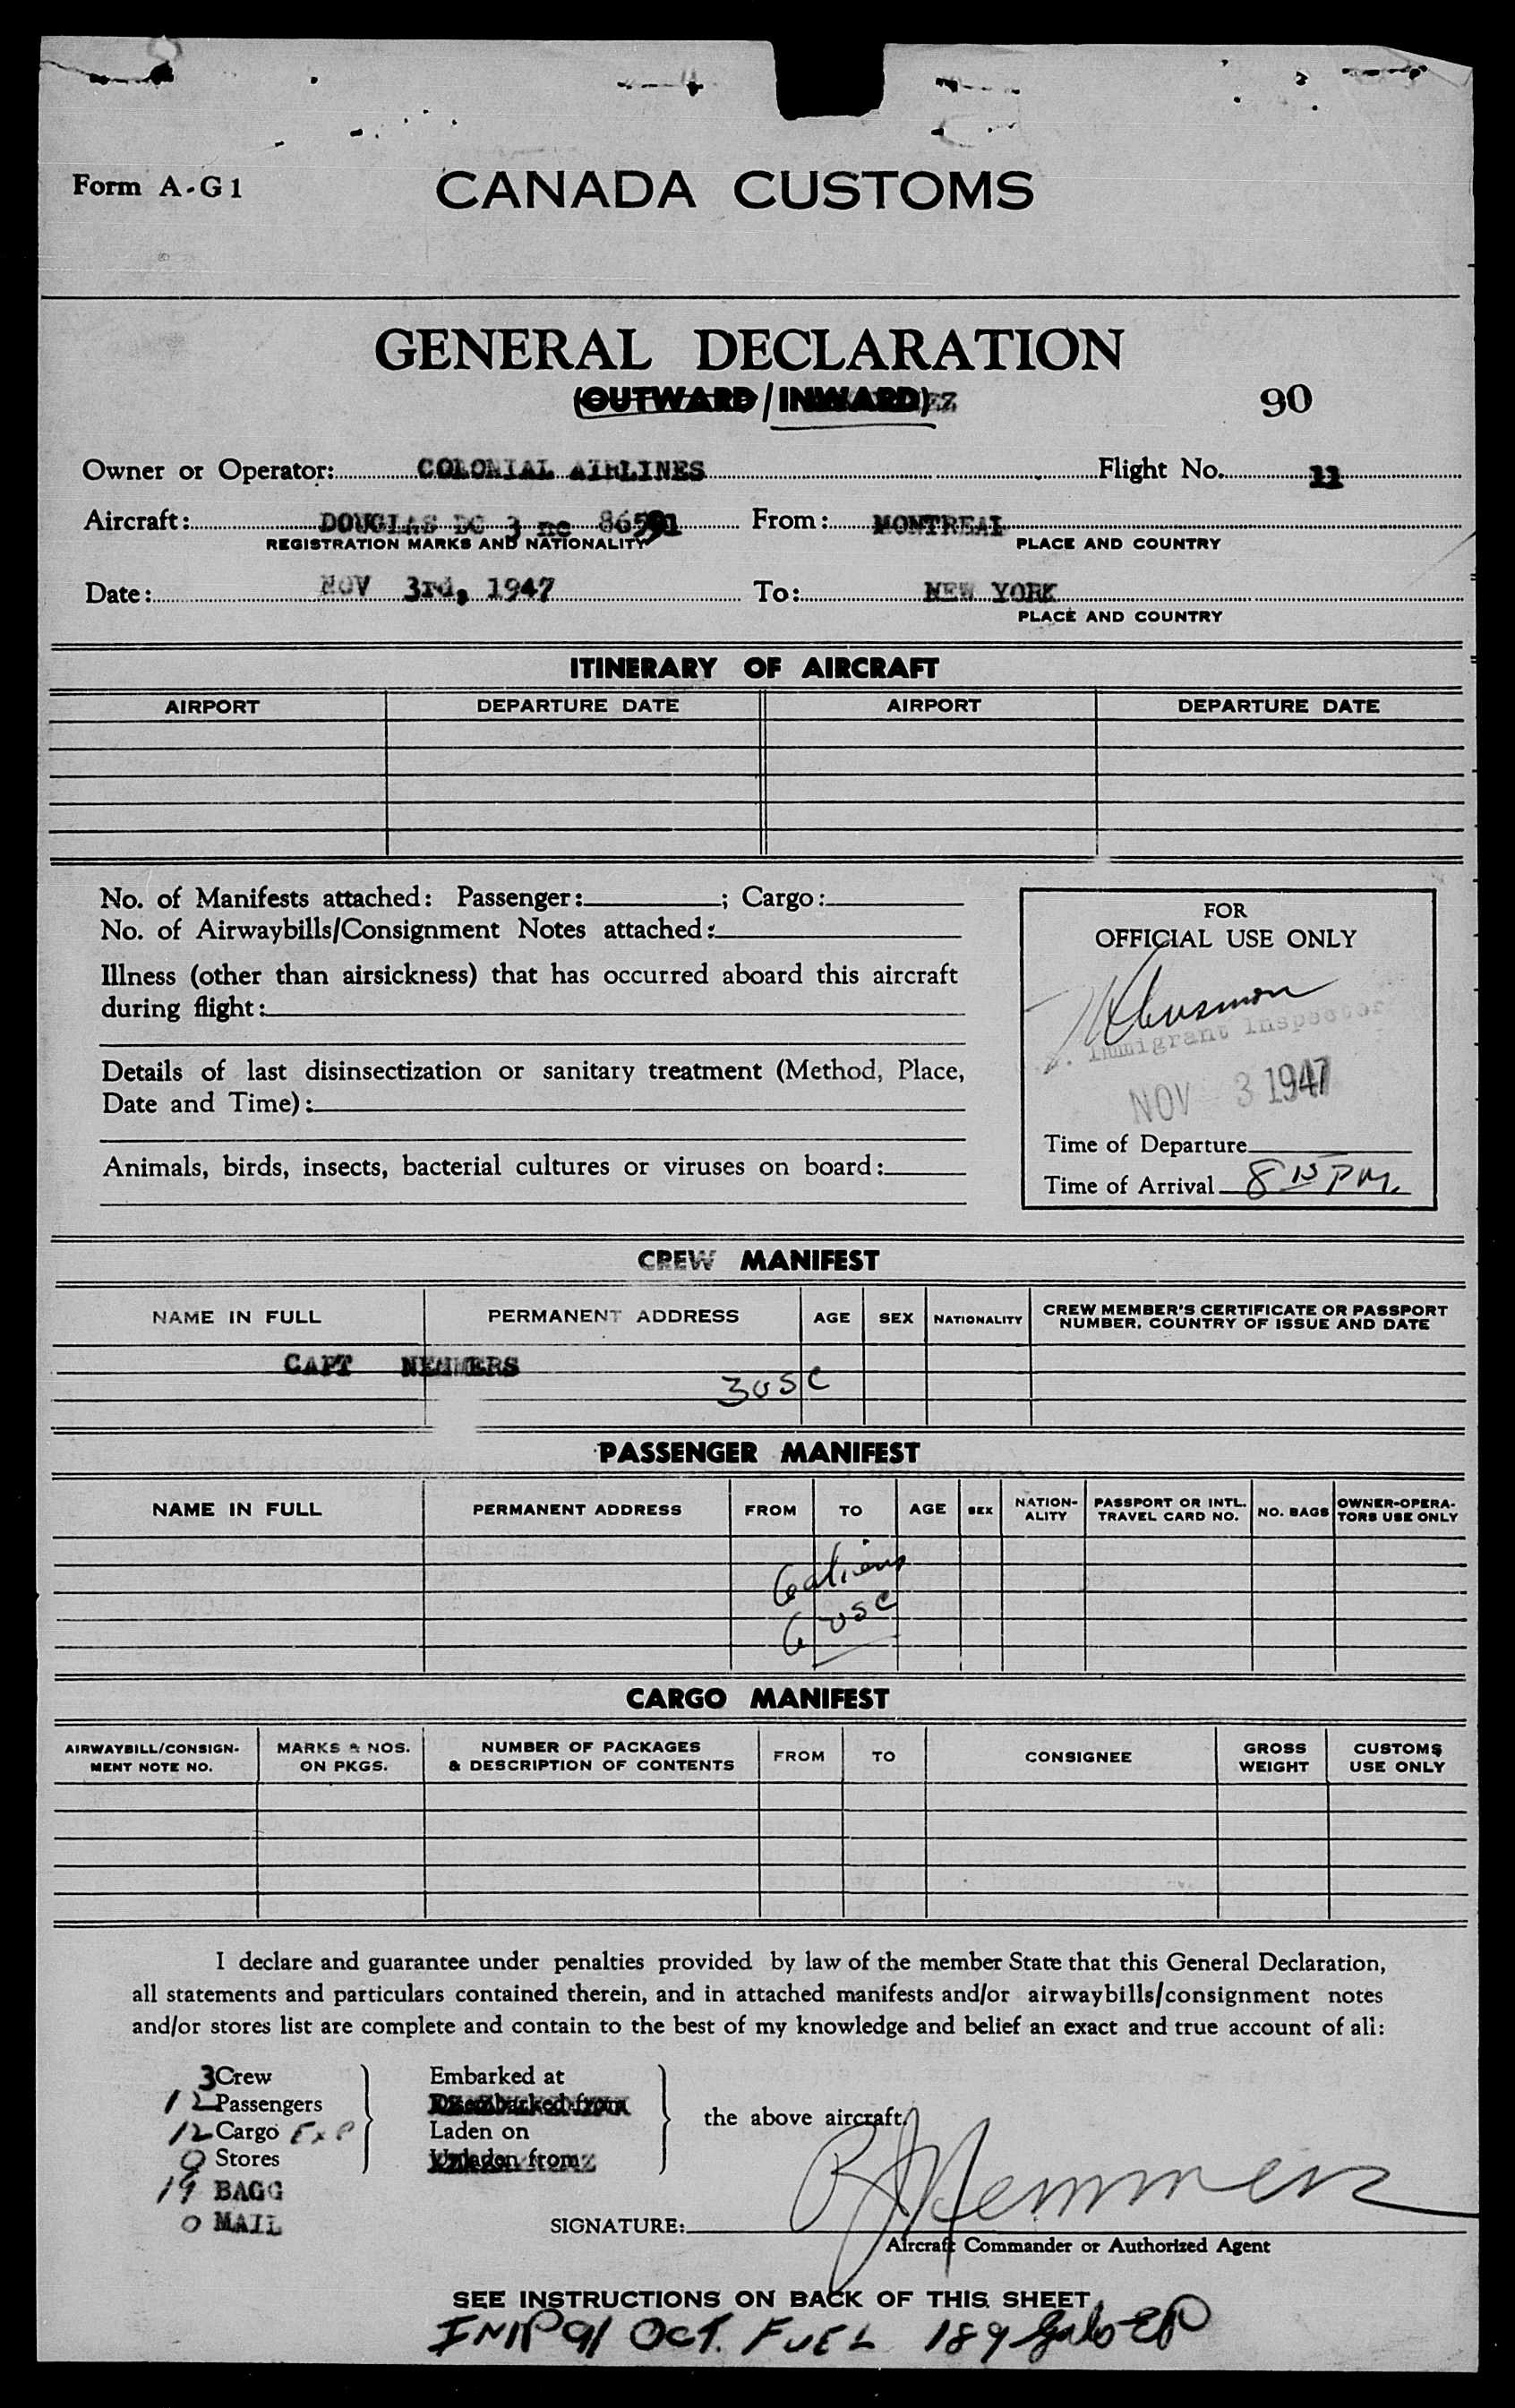 Form A-G1
CANADA CUSTOMS
GENERAL DECLARATION
(OUTWARD/INWARD)
90
Owner or Operator: COLONIAL AIRLINES Flight No. 11
Aircraft: DOUGLAS DC 3 nc From: MONTREAL
REGISTRATION MARKS AND NATIONALITY PLACE AND COUNTRY
Date: NOV 3rd, 1947 To: NEW YORK
PLACE AND COUNTRY
ITINERARY OF AIRCRAFT
AIRPORT DEPARTURE DATE AIRPORT DEPARTURE DATE
No. of Manifests attached: Passenger: ; Cargo:
No. of Airwaybills/Consignment Notes attached:
Illness (other than airsickness) that has occurred aboard this aircraft
during flight:
Details of last disinsectization or sanitary treatment (Method, Place,
Date and Time):
Animals, birds, insects, bacterial cultures or viruses on board:
FOR
OFFICIAL USE ONLY
Immigrant Inspector
NOV 3 1947
Time of Departure
Time of Arrival 8 15 PM.
CREW MANIFEST
NAME IN FULL PERMANENT ADDRESS AGE SEX NATIONALITY CREW MEMBER'S CERTIFICATE OR PASSPORT
NUMBER, COUNTRY OF ISSUE AND DATE
CAPT NEMMERS
3 USC
PASSENGER MANIFEST
NAME IN FULL PERMANENT ADDRESS FROM TO AGE SEX NATION-
ALITY PASSPORT OR INTL.
TRAVEL CARD NO. NO. BAGS OWNER-OPERA-
TORS USE ONLY
6 aliens
6 USC
CARGO MANIFEST
AIRWAYBILL/CONSIGN-
MENT NOTE NO. MARKS & NOS.
ON PKGS. NUMBER OF PACKAGES
& DESCRIPTION OF CONTENTS FROM TO CONSIGNEE GROSS
WEIGHT CUSTOMS
USE ONLY
I declare and guarantee under penalties provided by law of the member State that this General Declaration,
all statements and particulars contained therein, and in attached manifests and/or airwaybills/consignment notes
and/or stores list are complete and contain to the best of my knowledge and belief an exact and true account of all:
3 Crew
12 Passengers
12 Cargo Exp
0 Stores
19 BAGG
0 MAIL
Embarked at
Disembarked from
Laden on
Unladen from
the above aircraft.
SIGNATURE: Nemmers
Aircraft Commander or Authorized Agent
SEE INSTRUCTIONS ON BACK OF THIS SHEET
91 OCT. FUEL 189 gals